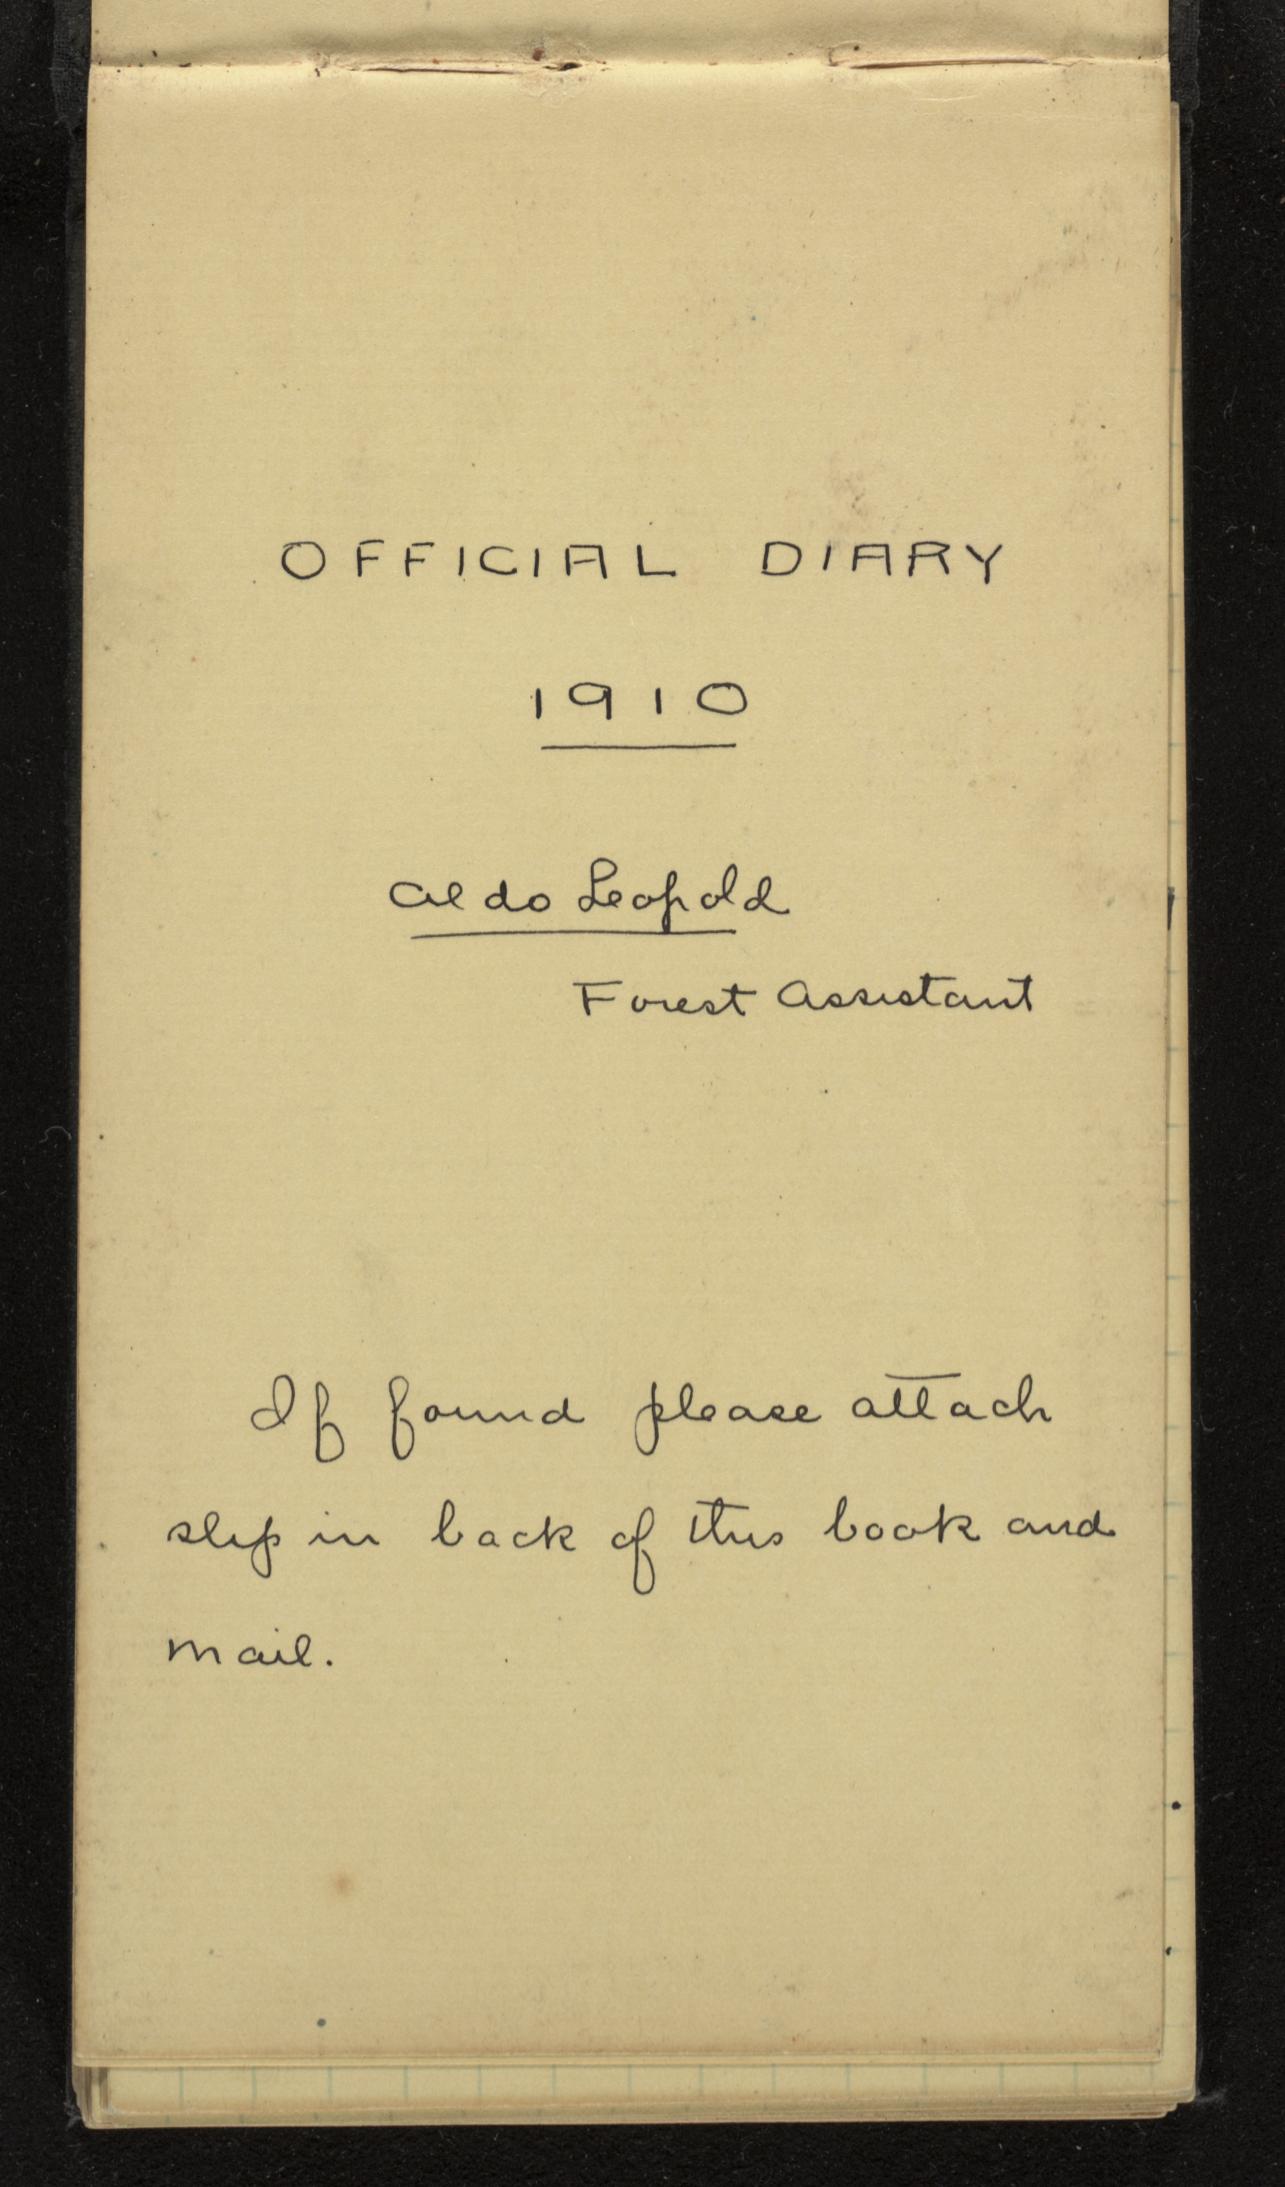 OFFICIAL DIARY
1910
Aldo Leopold
Forest Assistant
If found please attach
slip in back of this book and
mail.